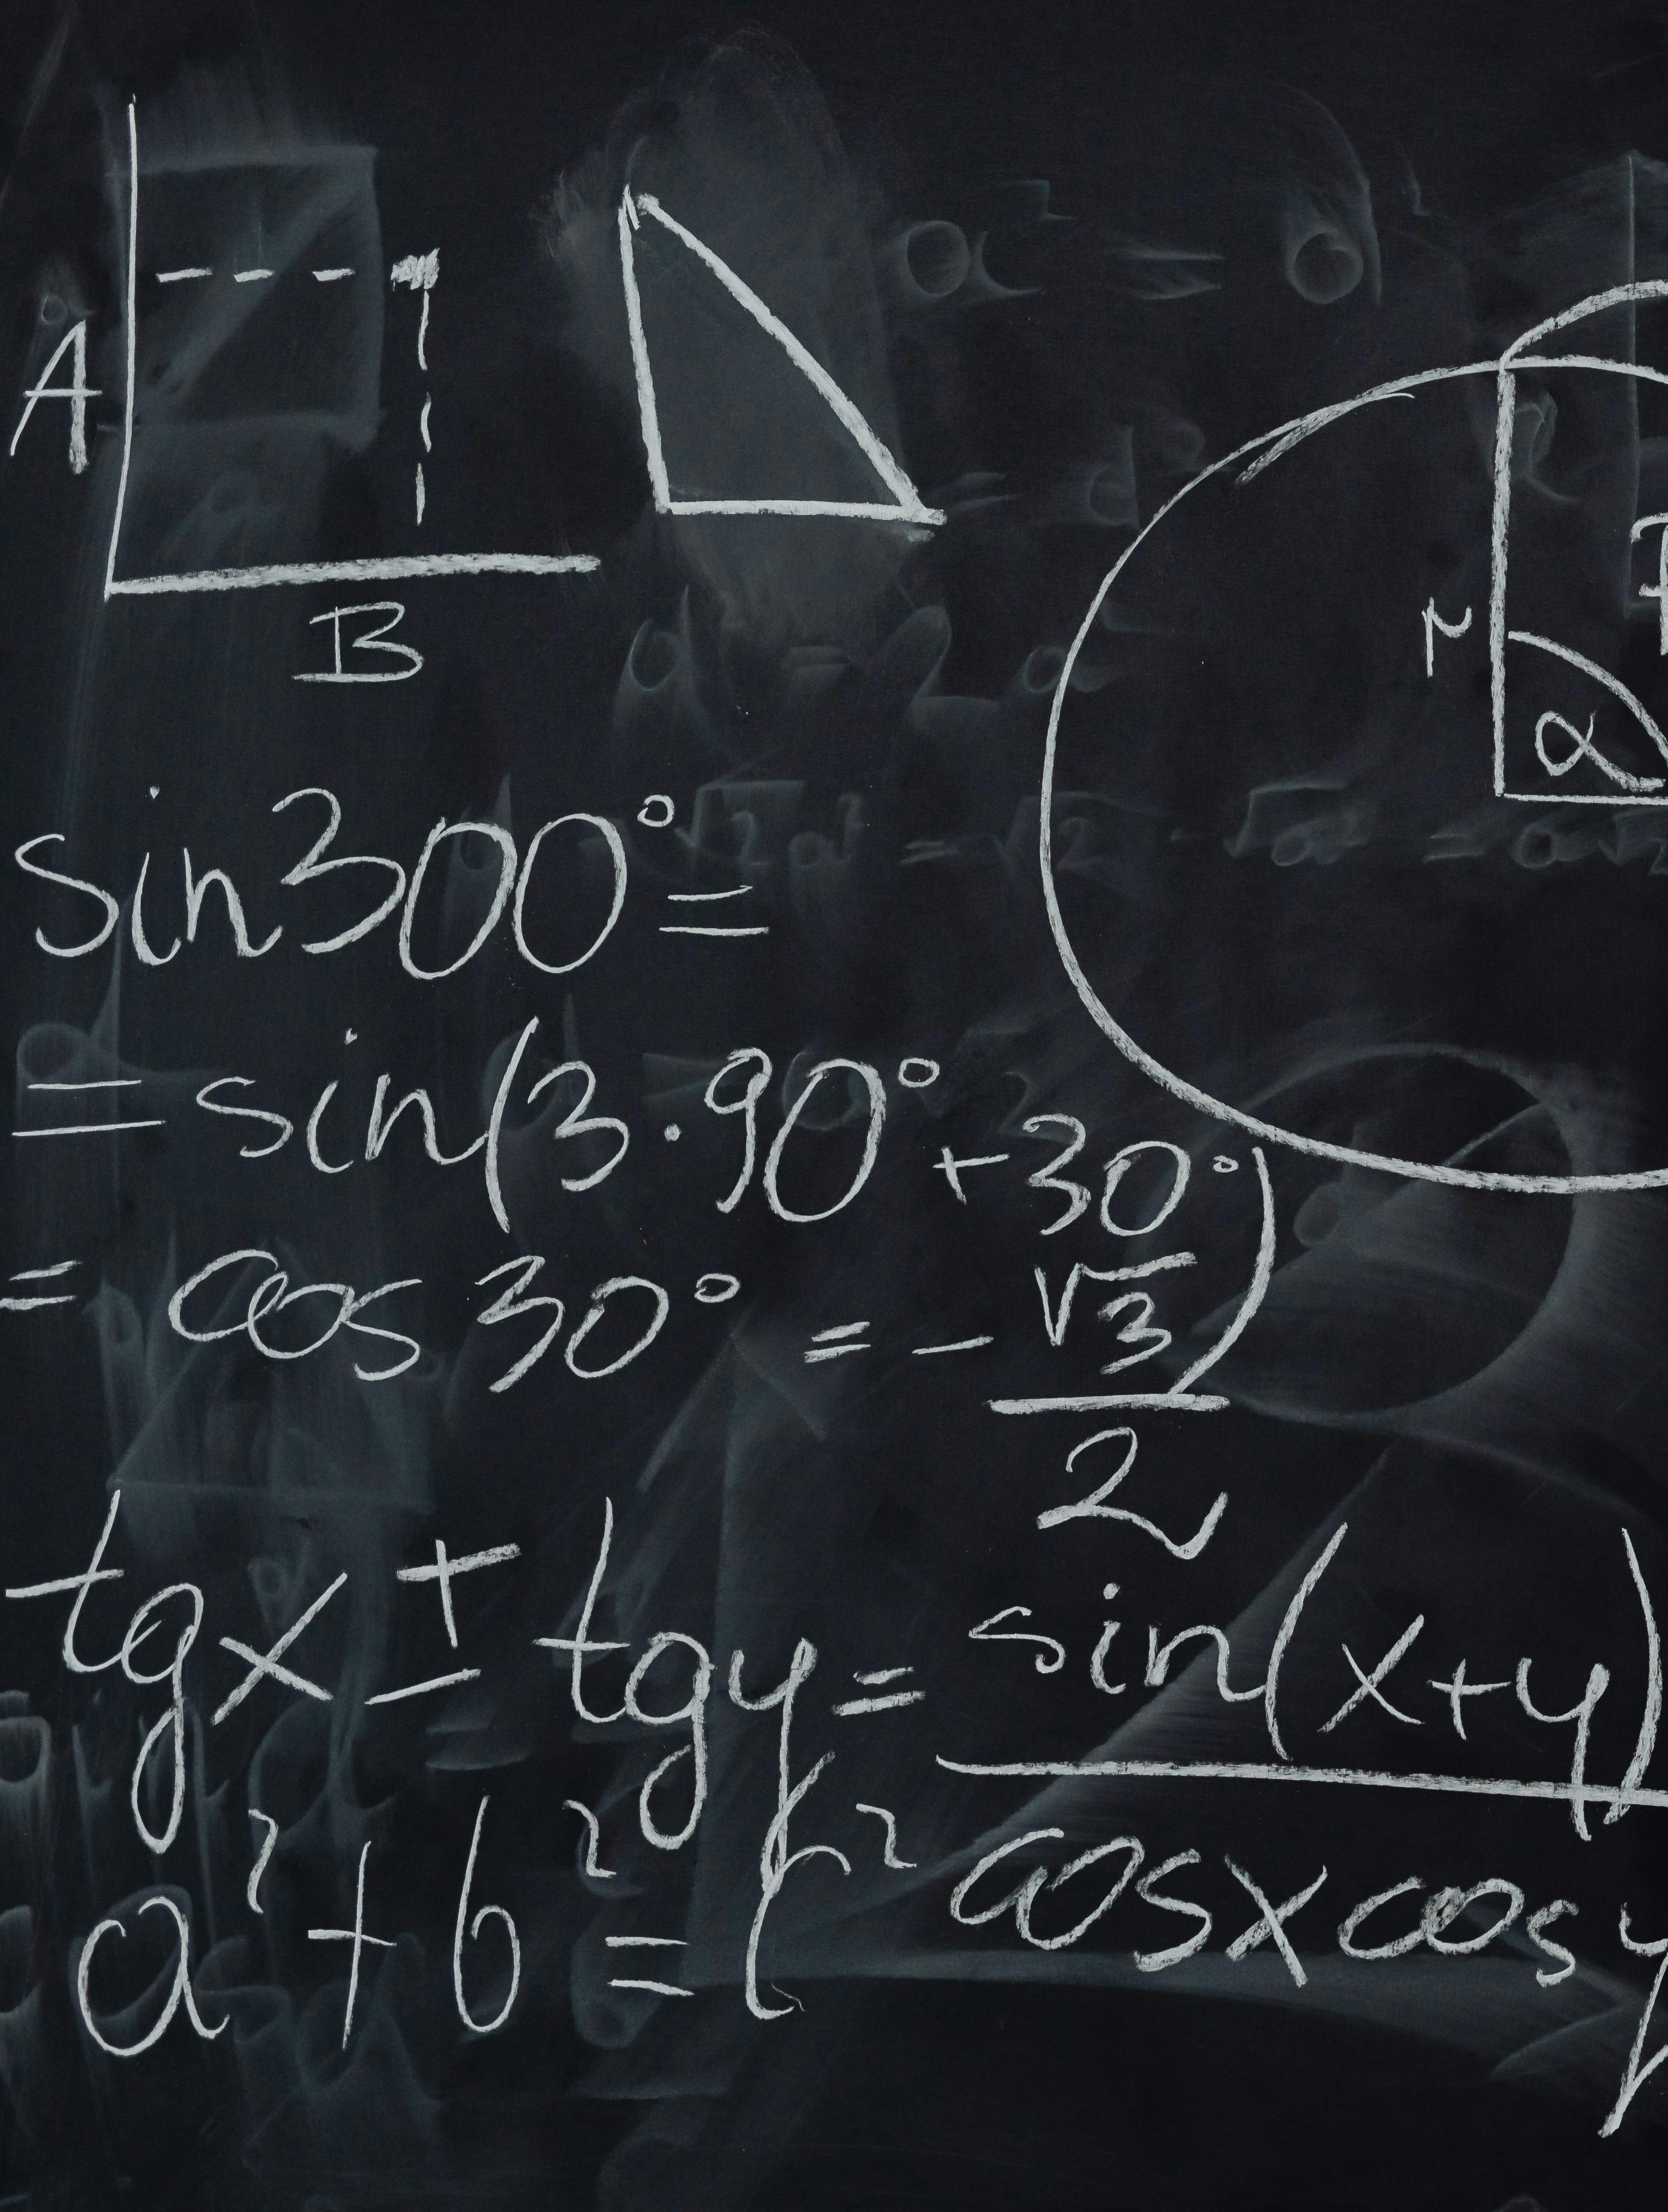 A
B
r
α
sin300°=
=sin(3·90°+30°)
= cos 30° = -√3/2
tgx ± tgy = sin(x+y)/cosxcosy
a²+b²=c²